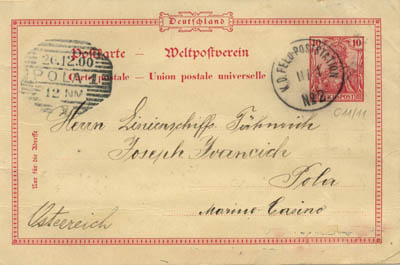 Deutschland
Postkarte – Weltpostverein
Carte postale – Union postale universelle
26.12.00
POLA 1
12 NM
K.D. FELD-POSTSTATION
No 2.
10 10
Nur für die Adresse
Herrn Linienschiffs Fähnrich
Joseph Ivancich
Pola
Marine Casino
Österreich
C 11/11